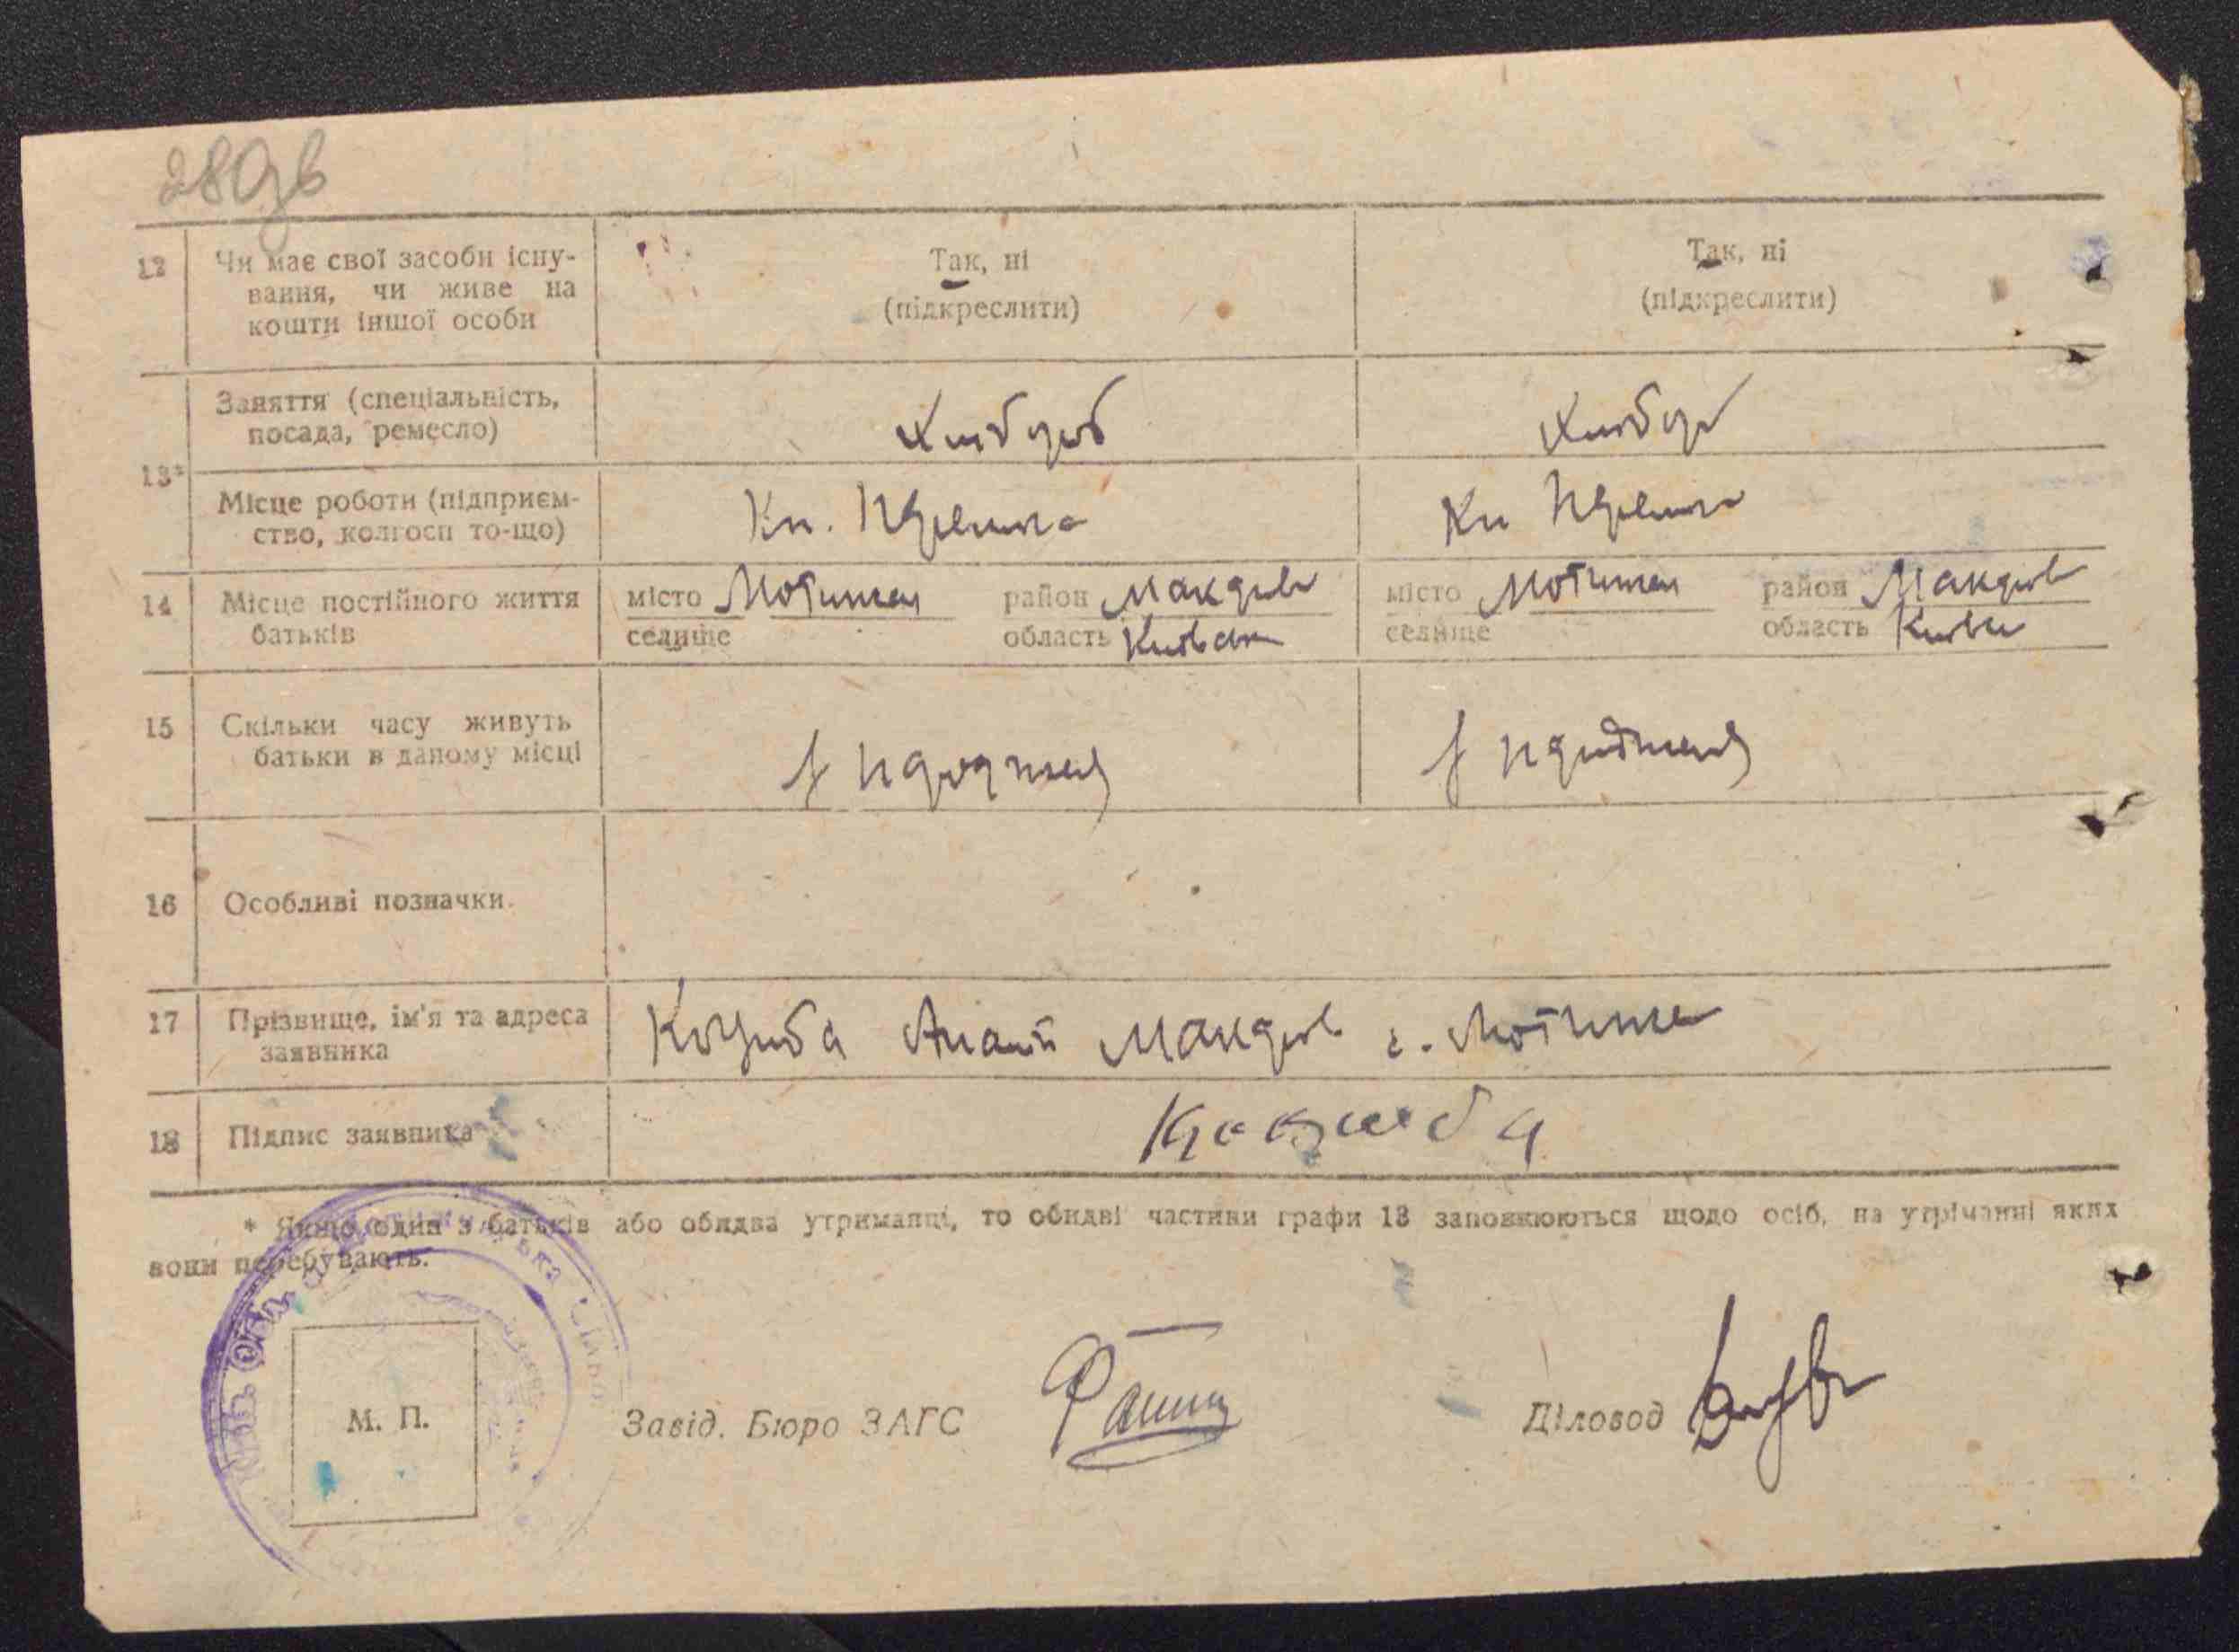 28 зв
12 Чи має свої засоби існу-
вання, чи живе на
кошти іншої особи
Так, ні
(підкреслити)
Так, ні
(підкреслити)
13*
Заняття (спеціальність,
посада, ремесло)
Хлібороб
Хлібор
Місце роботи (підприєм-
ство, колгосп то-що)
14 Місце постійного життя
батьків
місто Мотижин район Макарів
селище область Київськ
місто Мотижин район Макарів
селище область Київс
15 Скільки часу живуть
батьки в даному місці
З народження
З народження
16 Особливі позначки
17 Прізвище, ім'я та адреса
заявника
Коцюба Макарів с. Мотижин
18 Підпис заявника
Коцюба
* Якщо один з батьків або обидва утриманці, то обидві частини графи 13 заповнюються щодо осіб, на утріманні яких
вони перебувають.
М. П.
Завід. Бюро ЗАГС
Діловод